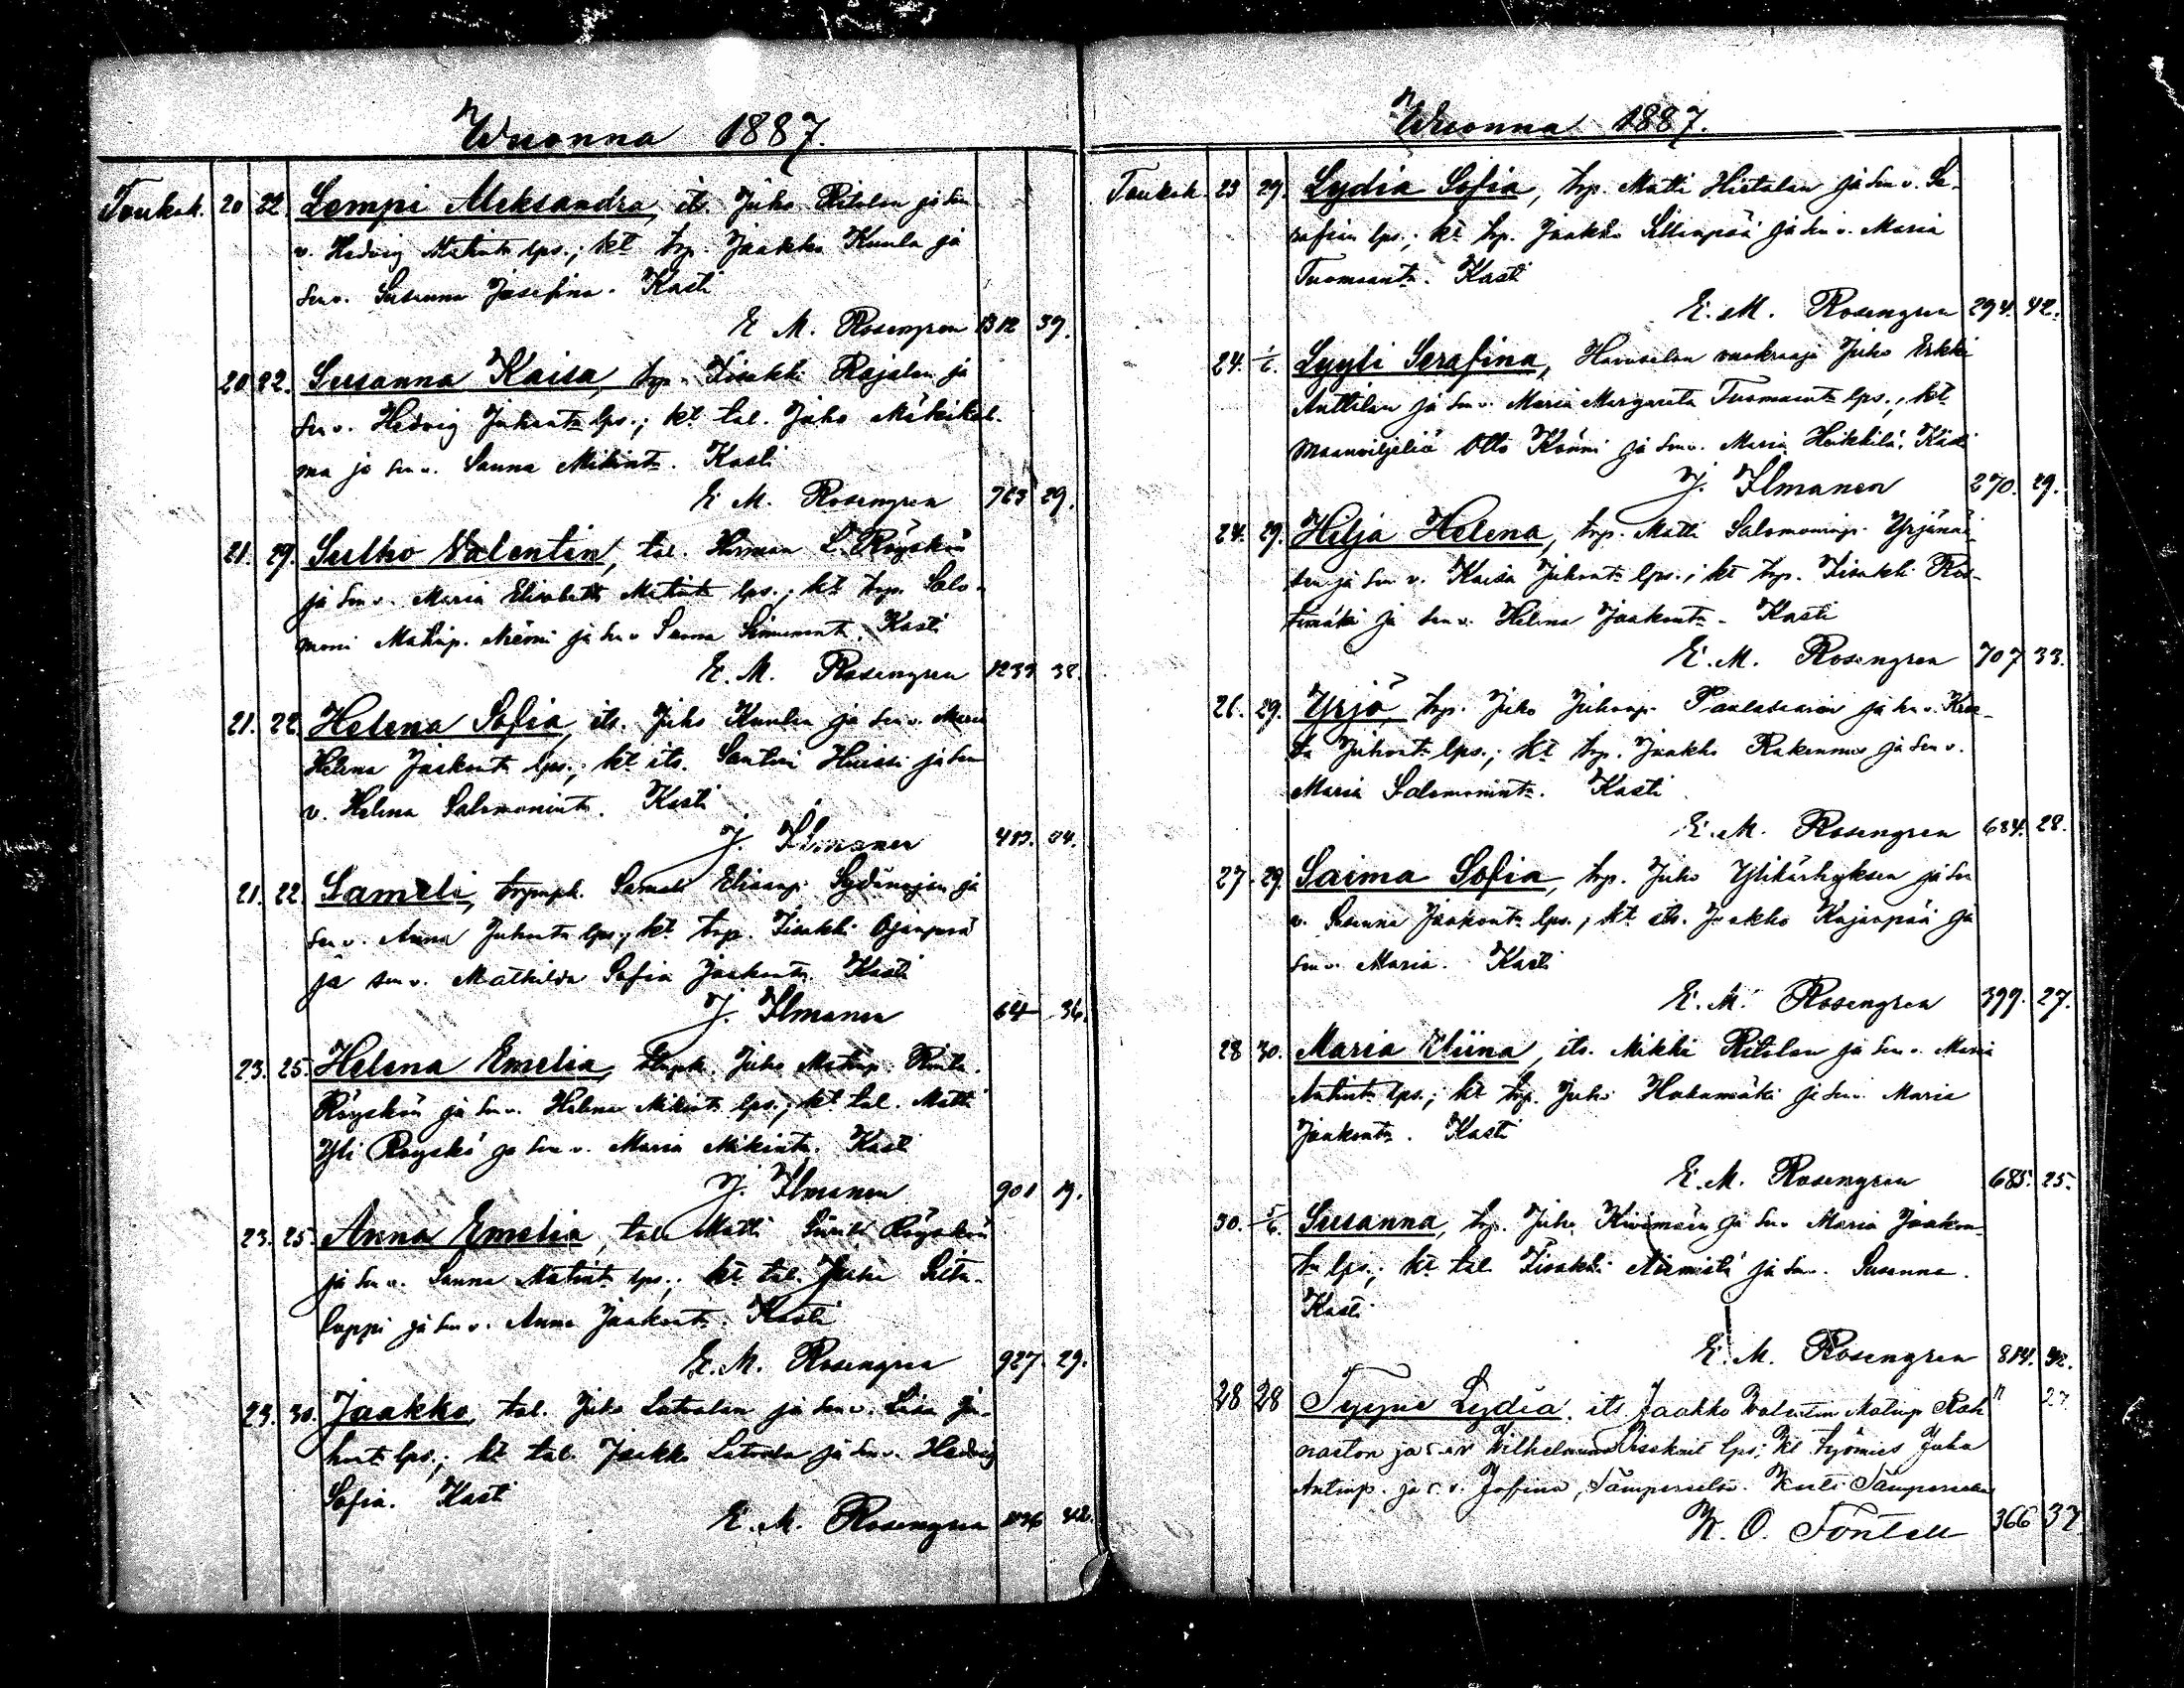 Wuonna 1887.
Toukok. 20 22 Lempi Aleksandra, its. Juho Ritolan ja sen
v. Hedvig Matint. lps.; kt. trp. Jaakko Kuula ja
sen v. Susanna Josefina. Kasti
E. M. Rosengren 1312 39.
20 22. Susanna Kaisa, trp. Iisakki Rajalan ja
sen v. Hedvig Juhont. lps.; kt. tal. Juho
ma ja sen v. Sanna Mikint. Kasti
E. M. Rosengren 763 29.
21. 29. Sulho Valentin, tal. Herman L. Röyskön
ja sen v. Maria Elisabeth Matint. lps.; kt. trp. Salo-
moni Matinp. Niemi ja sen v. Sanna Kasti
E. M. Rosengren 38.
21. 22. Helena Sofia, its. Juho Kuulan ja sen v. Maria
Helena Jaakont. lps.; kt. its. Santeri Huissi ja sen
v. Helena Salomonint. Kasti
J. Ilmanen 24.
21. 22. Sameli, Sameli Eliaanp. Sydänojan ja
sen v. Anna Juhont. lps.; kt. trp. Iisakki Ojanperä
ja sen v. Mathilda Sofia Jaakont. Kasti
J. Ilmanen 64 36.
23. 25. Helena Emelia, Juho Matinp. Rinta-
Röyskön ja sen v. Helena Mikint. lps.; kt. tal. Matti
Yli Röyskö ja sen v. Maria Mikint. Kasti
J. Ilmanen 901 19.
23. 25. Anna Emelia, tal. Matti Röyskön
ja sen v. Sanna Matint. lps.; kt. tal. Juho
luppi ja sen v. Anna Jaakont. Kasti
E. M. Rosengren 927. 29.
23. 30. Jaakko, tal. Juho Latvalan ja sen v. Liisa Ju-
hont. lps.; kt. tal. Jaakko Latvala ja sen v. Hedvig
Sofia. Kasti
E. M. Rosengren 42.
Wuonna 1887.
Toukok. 23 29. Lydia Sofia, trp. Matti Hietalan ja sen v. Se-
rafian lps.; kt. trp. Jaakko Sillanpää ja sen v. Maria
Tuomaant. Kasti
E. M. Rosengren 294. 42.
24. 1/6. Lyyli Serafina, vuokraaja Juho Erkki
Anttilan ja sen v. Maria Margareta Tuomaant. lps., kt.
maanviljeliä Otto Könni ja sen v. Maria Heikkilä. Kasti
J. Ilmanen 270. 29.
24. 29. Hilja Helena, trp. Matti Salomoninp. Yrjänäi-
sen ja sen v. Kaisa Juhont. lps.; kt. trp. Iisakki
ja sen v. Helena Jaakont. Kasti
E. M. Rosengren 707 33.
26. 29. Yrjö, trp. Juho Juhonp. ja sen v. Kree-
ta Juhont. lps.; kt. trp. Jaakko Rakennus ja sen v.
Maria Salomonint. Kasti
E. M. Rosengren 684. 28.
27. 29. Saima Sofia, trp. Juho Ylikärhyksen ja sen
v. Susanna Jaakont. lps.; kt. its. Jaakko Kujanpää ja
sen v. Maria. Kasti
E. M. Rosengren 399. 27.
28 30. Maria Eliina, its. Mikki Ritolan ja sen v. Maria
Antint. lps.; kt. trp. Juho Hakamäki ja sen v. Maria
Jaakont. Kasti
E. M. Rosengren 685. 25.
30. 5/6. Susanna, trp. Juho Kivimäen ja sen v. Maria Jaakon-
tn. lps.; kt. tal. Iisakki Niemistö ja sen v. Susanna.
Kasti
E. M. Rosengren 42.
28 28 Tyyne Lydia, its. Jaakko Valentin Matinp. Rah- " 27
naston ja s. v. Wilhelmina Iisakint. lps; kt. työmies Juha
Antinp. ja s. v. Joffina, Tampereelta. Kasti Tampereella
K. O. Fontell 366 37.